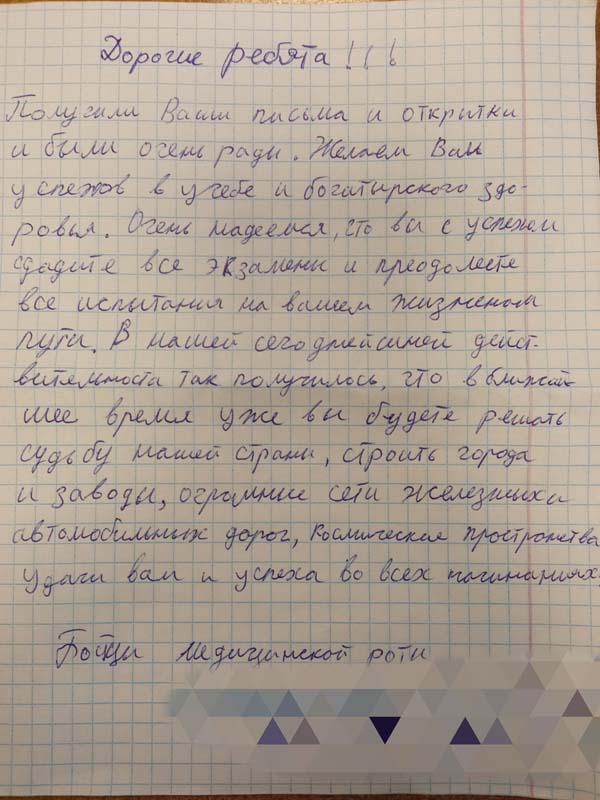 Дорогие ребята!!!
Получили Ваши письма и открытки
и были очень рады. Желаем Вам
успехов в учебе и богатырского здо-
ровья. Очень надеемся, что вы с успехом
сдадите все экзамены и преодолеете
все испытания на вашем жизненом
пути. В нашей сегоднейшней дейст-
вительности так получилось, что в ближай-
шее время уже вы будете решать
судьбу нашей страны, строить города
и заводы, огромные сети железных и
автомобильных дорог, космические пространства
Удачи вам и успеха во всех начинаниях.
Бойцы медицинской роты